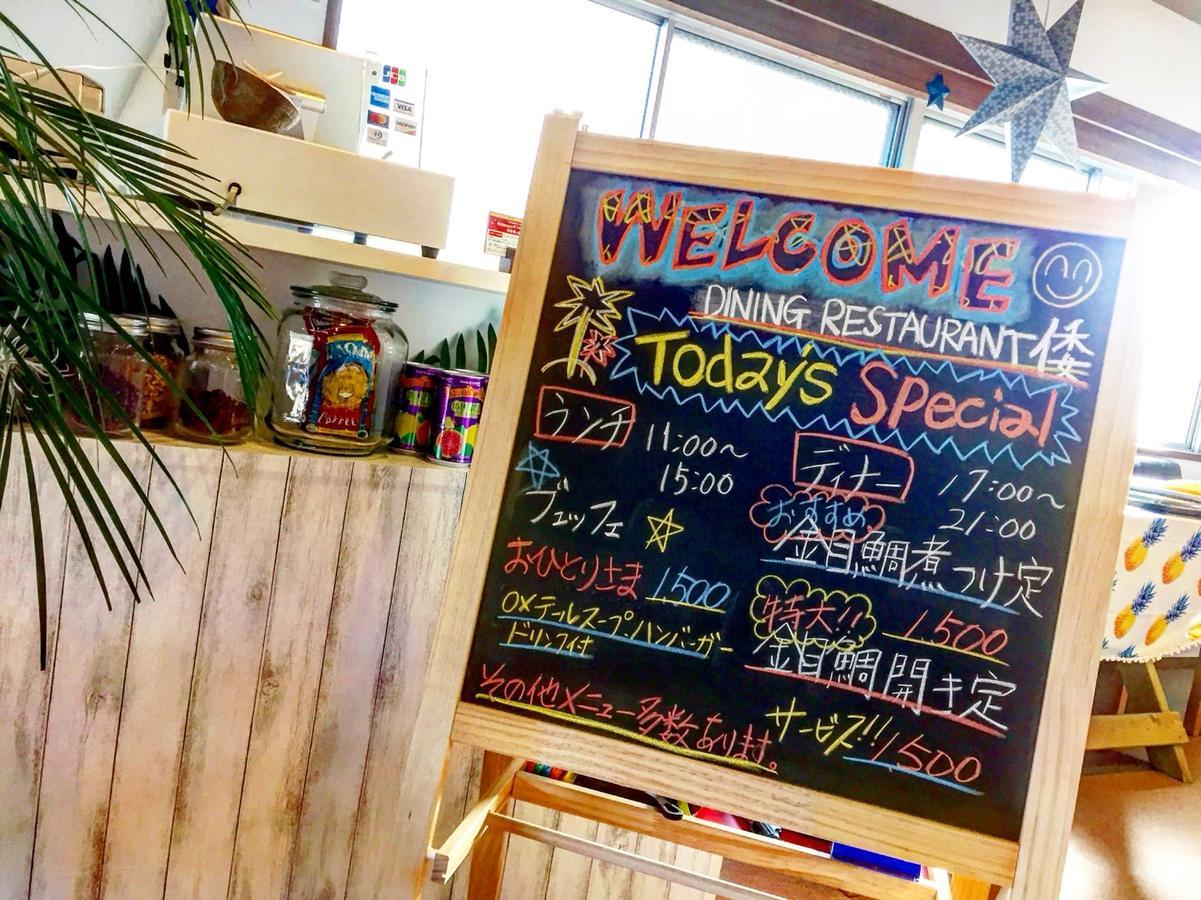 JCB
VISA
DISCOVER
WELCOME
DINING RESTAURANT 倭
Today's Special
ランチ 11:00~
15:00
ブュッフェ
おひとりさま 1,500
OXテールスープ・ハンバーガー
ドリンク付
ディナー 17:00~
21:00
おすすめ
金目鯛煮つけ定
1,500
特大!!
金目鯛開き定
サービス!! 1,500
その他メニュー多数あります。
COFFEE